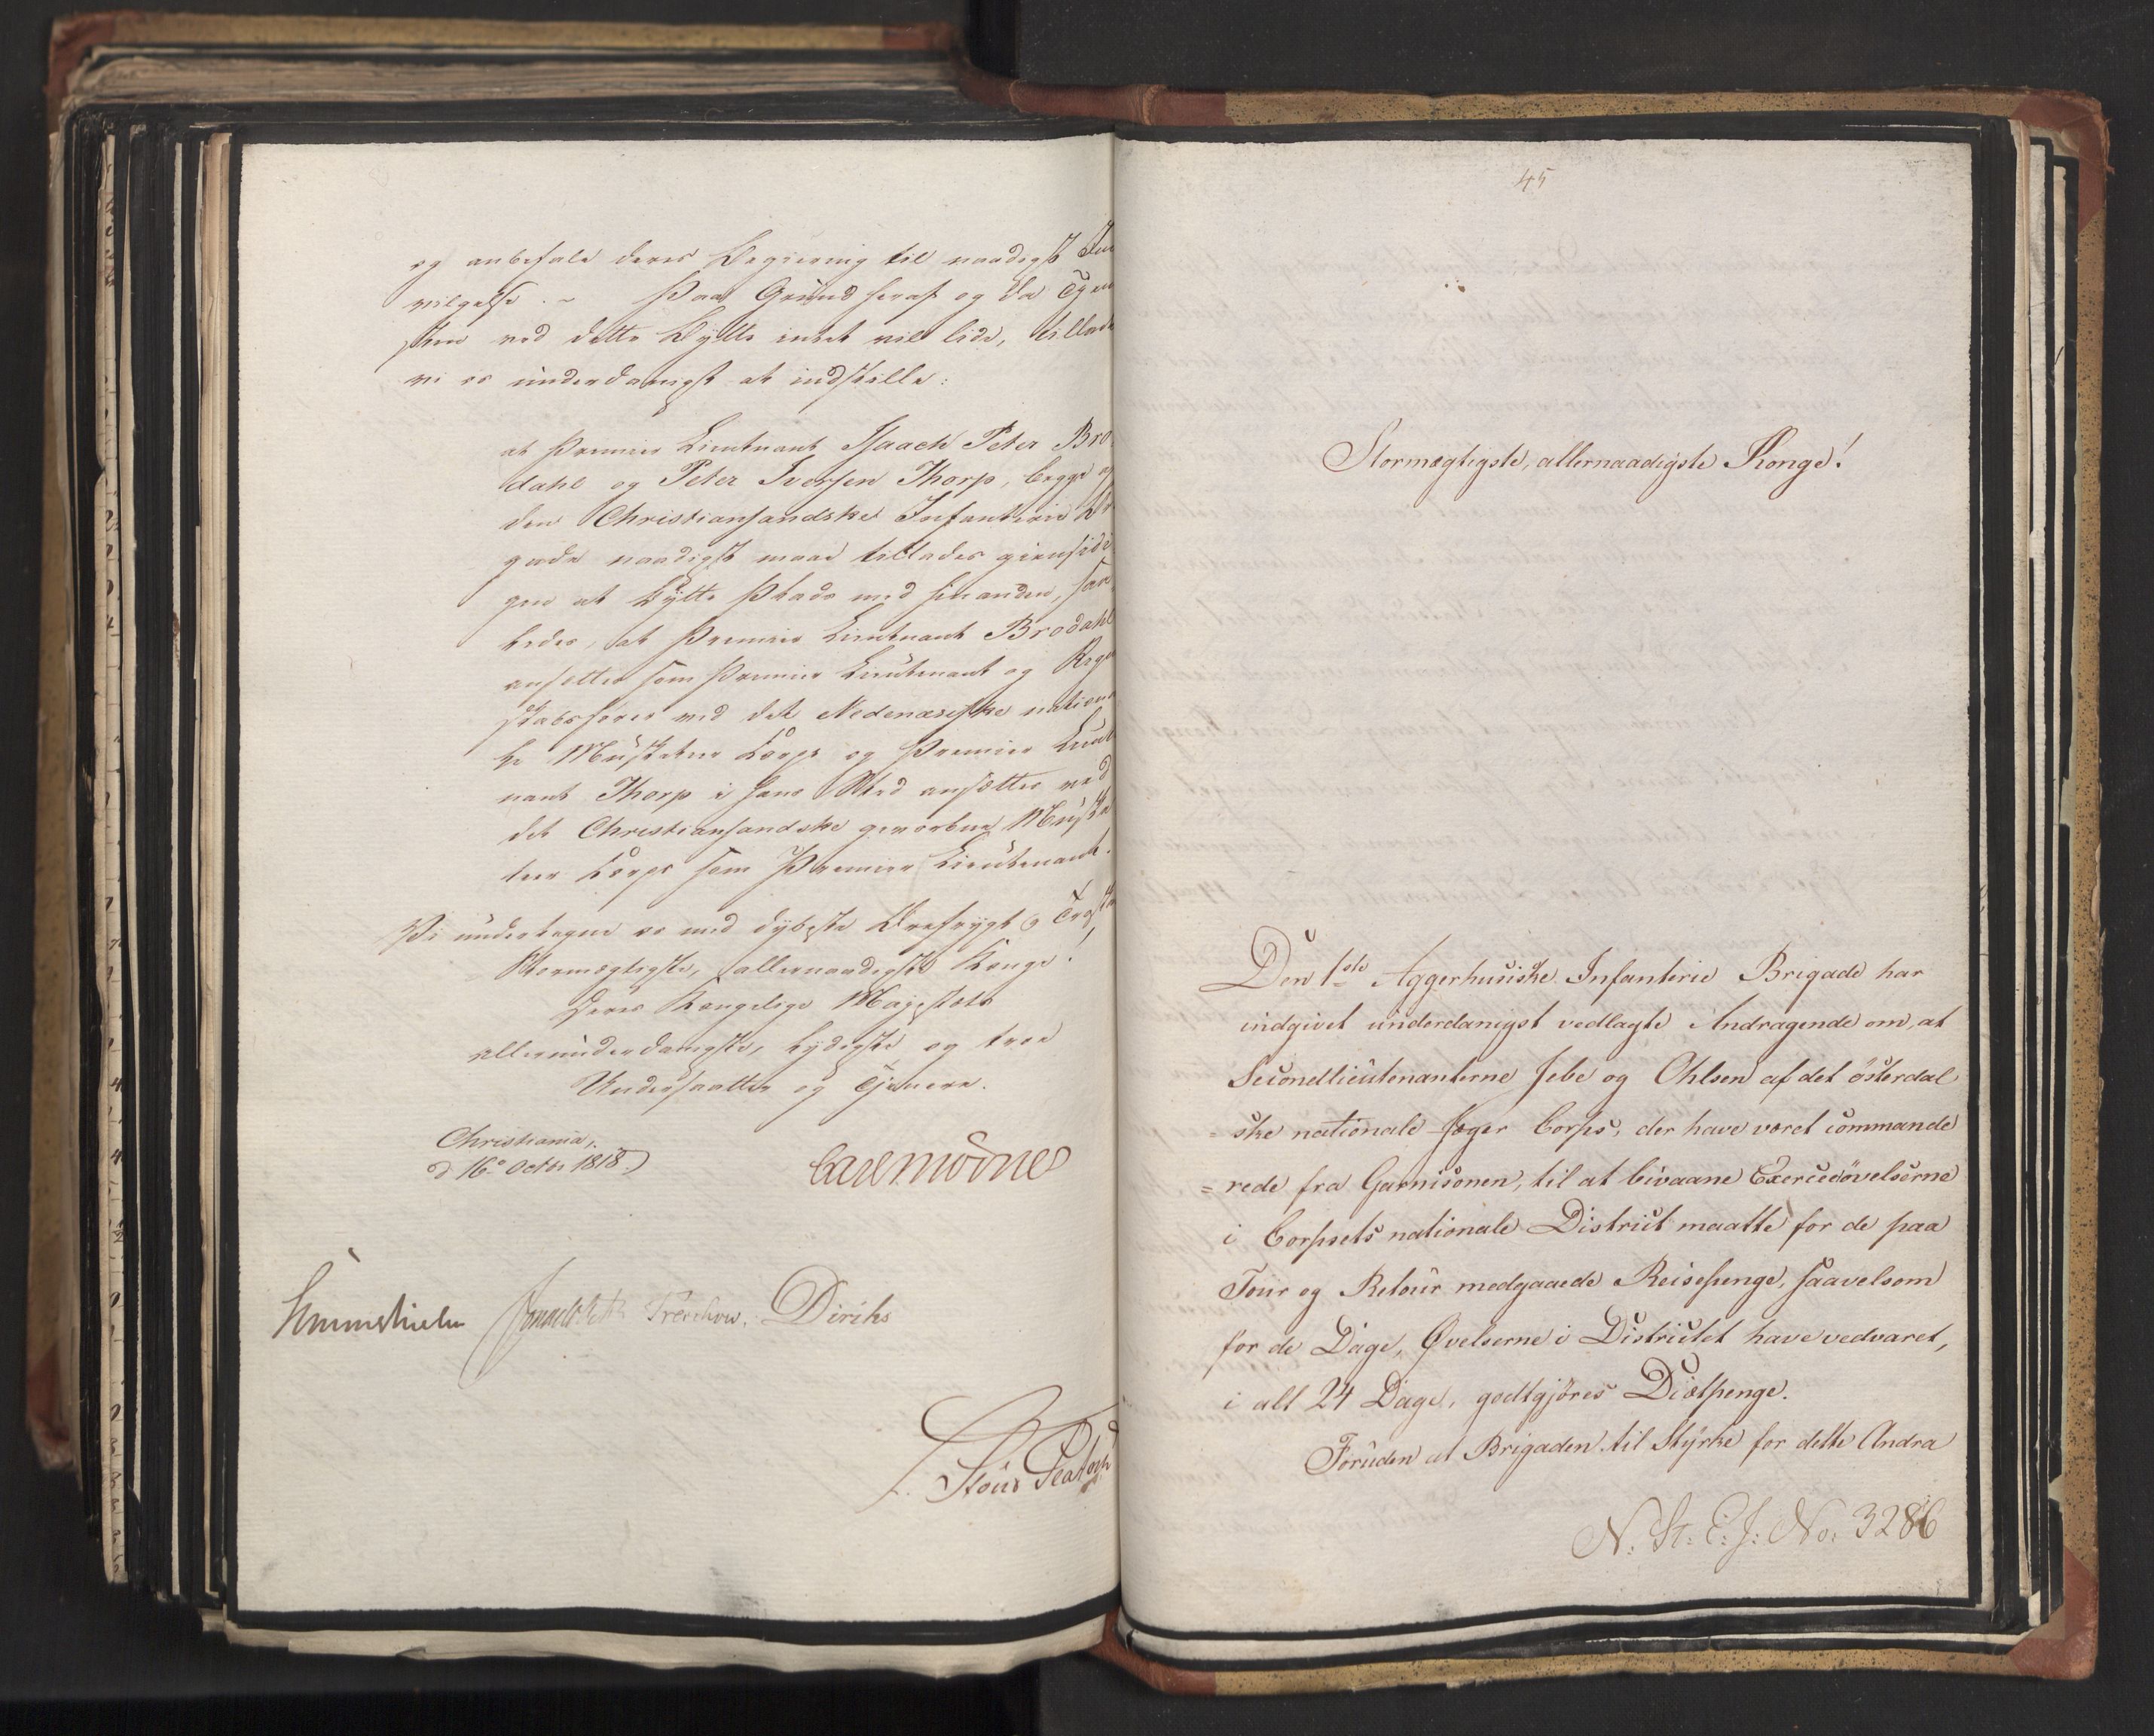 og anbefale deres Begiering til naadigst Ind
vilgelse. - Paa Grund heraf og da Tjene
sten ved dette Bytte intet vil lide, tillade
vi os underdanigst at indstille:
at Premier Lieutnant Isaach Peter Bro
dahl og Peter Iversen Thorp, begge af
den Christiansandske Infanterie Bri
gade naadigst maae tillades gjensidi
gen at bytte Plads med hinanden, saa
ledes, at Premier Lieutnant Brodahl
ansættes som Premier Lieutenant og Regn
skabsfører ved det Nedenæsiske nationa
le Musketeer Corps og Premier Lieut
nant Thorp i hans Sted ansættes ved
det Christiansandske gevorbne Muske
teer Corps som Premier Lieutenant.
Vi undertegne os med dybeste Ærefrygt og Troskab
Stormægtigste, allernaadigste Konge!
Deres Kongelige Majestæts
allerunderdanigste, lydigste og troe
Undersaatter og Tjenere.
Christiania,
d 16de Octbr 1818.
Carl Mörner
Hummelhielm Treschow. Diriks
45
Stormægtigste, allernaadigste Konge!
Den 1ste Aggerhusiske Infanterie Brigade har
indgivet underdanigst vedlagte Andragende om, at
Secondlieutenanterne Jebe og Ohlsen af det österdal
= ske nationale Jæger Corps, der have været commande
= rede fra Garnisonen, til at bivaane Exerceerövelserne
i Corpsets nationale District maatte for de paa
Tour og Retour medgaaede Reisepenge, saavelsom
for de Dage, Øvelserne i Districtet have vedvaret,
i alt 24 Dage, godtgjöres Diætpenge.
Foruden at Brigaden til Styrke for dette Andra
N: St: E: J: No: 3286